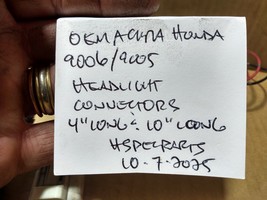 OEM ACURA HONDA
9006/9005
HEADLIGHT
CONNECTORS
4" LONG & 10" LONG
HSPECPARTS
10-7-2025